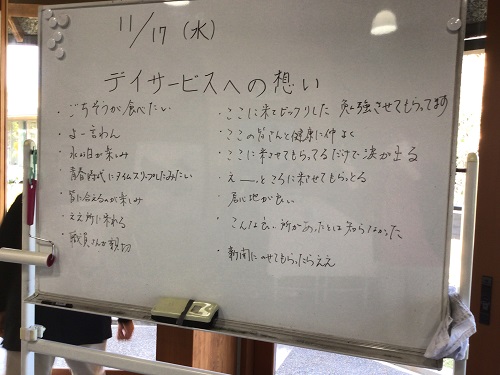 11/17(水)
デイサービスへの想い
・ごちそうが食べたい
・よー言わん
・水曜日が楽しみ
・青春時代にタイムスリップしたみたい
・皆に会えるのが楽しみ
・ええ所に来れる
・職員さんが親切
・ここに来てビックリした 勉強させてもらってます
・ここの皆さんと健康に仲よく
・ここに来させてもらってるだけで涙が出る
・えーところに来させてもらっとる
居心地が良い
・こんな良い所があったとは知らなかった
・新聞にのせてもらったらええ